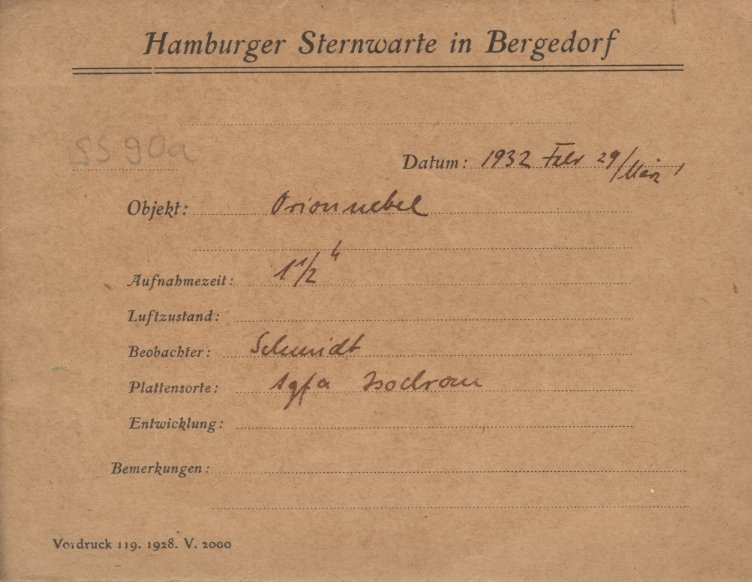 Hamburger Sternwarte in Bergedorf
SS 90a
Datum: 1932 Febr 29/März 1
Objekt: Orionnebel
Aufnahmezeit: 1 1/2 h
Luftzustand:
Beobachter: Schmidt
Plattensorte: Agfa Isochrom
Entwicklung:
Bemerkungen:
Vordruck 119. 1928. V. 2000